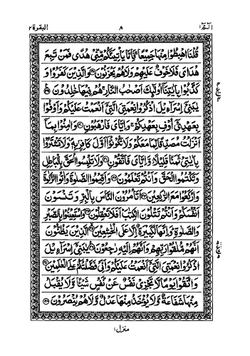 الٓمّٓ ١ ٨ البقرة ٢
قُلْنَا اهْبِطُوْا مِنْهَا جَمِيْعًا فَاِمَّا يَاْتِيَنَّكُمْ مِّنِّيْ هُدًى فَمَنْ تَبِعَ
هُدَايَ فَلَا خَوْفٌ عَلَيْهِمْ وَلَا هُمْ يَحْزَنُوْنَ وَالَّذِيْنَ كَفَرُوْا وَ
كَذَّبُوْا بِاٰيٰتِنَآ اُولٰٓئِكَ اَصْحٰبُ النَّارِ هُمْ فِيْهَا خٰلِدُوْنَ
يٰبَنِيْٓ اِسْرَآءِيْلَ اذْكُرُوْا نِعْمَتِيَ الَّتِيْٓ اَنْعَمْتُ عَلَيْكُمْ وَاَوْفُوْا
بِعَهْدِيْٓ اُوْفِ بِعَهْدِكُمْ وَاِيَّايَ فَارْهَبُوْنِ وَاٰمِنُوْا بِمَآ
اَنْزَلْتُ مُصَدِّقًا لِّمَا مَعَكُمْ وَلَا تَكُوْنُوْٓا اَوَّلَ كَافِرٍۭ بِهٖ وَلَا تَشْتَرُوْا
بِاٰيٰتِيْ ثَمَنًا قَلِيْلًا وَّاِيَّايَ فَاتَّقُوْنِ وَلَا تَلْبِسُوا الْحَقَّ بِالْبَاطِلِ
وَتَكْتُمُوا الْحَقَّ وَاَنْتُمْ تَعْلَمُوْنَ وَاَقِيْمُوا الصَّلٰوةَ وَاٰتُوا الزَّكٰوةَ
وَارْكَعُوْا مَعَ الرّٰكِعِيْنَ اَتَاْمُرُوْنَ النَّاسَ بِالْبِرِّ وَتَنْسَوْنَ
اَنْفُسَكُمْ وَاَنْتُمْ تَتْلُوْنَ الْكِتٰبَ اَفَلَا تَعْقِلُوْنَ وَاسْتَعِيْنُوْا بِالصَّبْرِ
وَالصَّلٰوةِ وَاِنَّهَا لَكَبِيْرَةٌ اِلَّا عَلَى الْخٰشِعِيْنَ الَّذِيْنَ يَظُنُّوْنَ
اَنَّهُمْ مُّلٰقُوْا رَبِّهِمْ وَاَنَّهُمْ اِلَيْهِ رٰجِعُوْنَ يٰبَنِيْٓ اِسْرَآءِيْلَ
اذْكُرُوْا نِعْمَتِيَ الَّتِيْٓ اَنْعَمْتُ عَلَيْكُمْ وَاَنِّيْ فَضَّلْتُكُمْ عَلَى الْعٰلَمِيْنَ
وَاتَّقُوْا يَوْمًا لَّا تَجْزِيْ نَفْسٌ عَنْ نَّفْسٍ شَيْئًا وَّلَا يُقْبَلُ
مِنْهَا شَفَاعَةٌ وَّلَا يُؤْخَذُ مِنْهَا عَدْلٌ وَّلَا هُمْ يُنْصَرُوْنَ
منزل ١